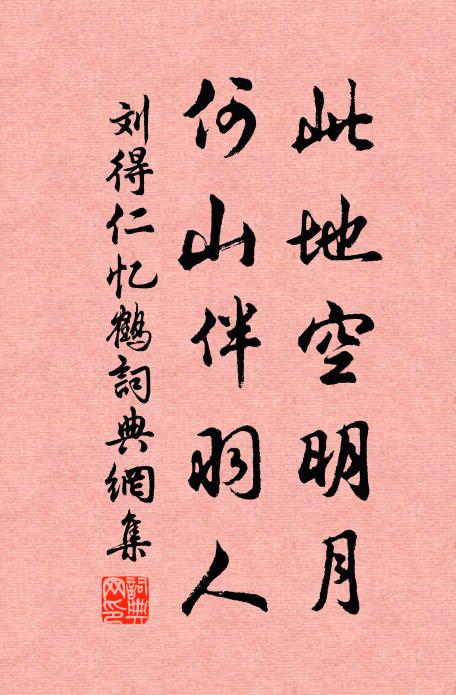 此地空明月
何山伴羽人
刘得仁忆鹤詞典網集
詞典網印